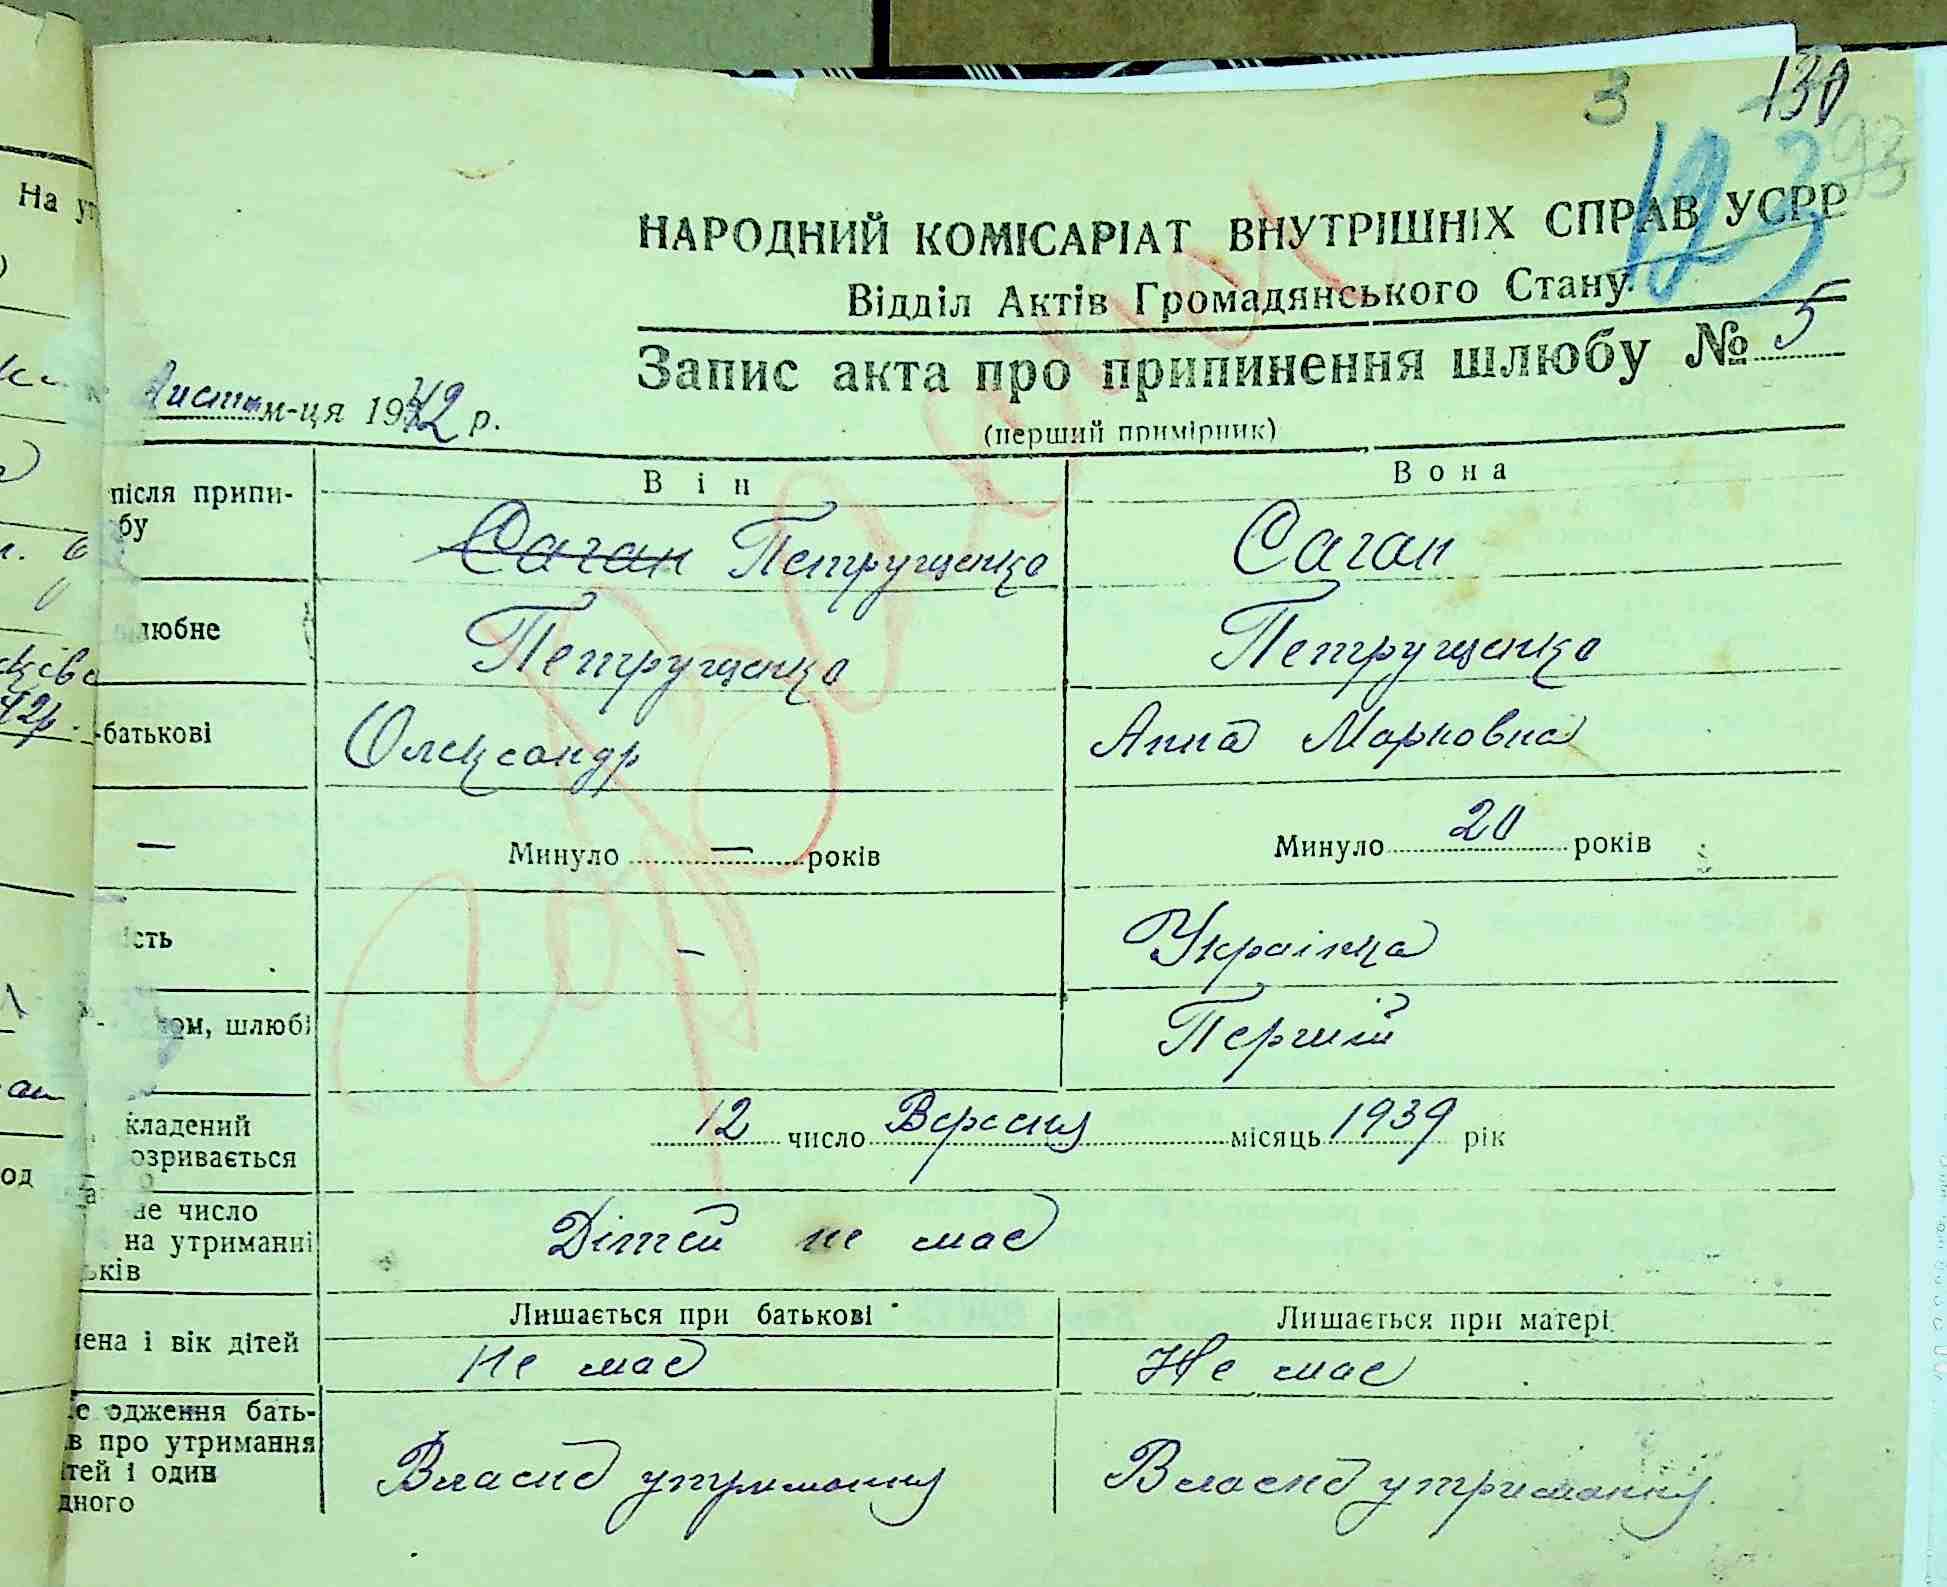 3 130
93
123
НАРОДНИЙ КОМІСАРІАТ ВНУТРІШНІХ СПРАВ УСРР
Відділ Актів Громадянського Стану
Запис акта про припинення шлюбу № 5
Листоп м-ця 1942 р.
(перший примірник)
Він Вона
після припи-
бу
Саган Петрущенко Саган
любне Петрущенко Петрущенко
батькові Олександр Анна Марковна
— Минуло — років Минуло 20 років
ість — Українка
ом, шлюбі Перший
кладений
озривається
12 число Вересня місяць 1939 рік
не число
на утриманні
ьків
Дітей не має
Лишається при батькові Лишається при матері
мена і вік дітей Не має Не має
одження бать-
в про утримання
тей і один
дного
Власне утримання Власне утримання